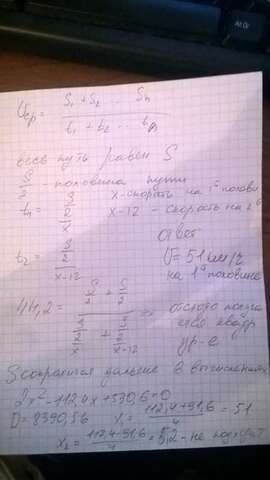 Vср = (S₁ + S₂ ... Sn) / (t₁ + t₂ ... tn)
весь путь равен S
S/2 - половина пути
t₁ = (S/2)/x   x - скорость на 1ой полови
x-12 - скорость на 2ой
t₂ = (S/2)/(x-12)
ответ
V = 51 км/ч
на 1ой половине
44,2 = (S/2 + S/2) / ((S/2)/x + (S/2)/(x-12)) => отсюда
квадр
ур-е
S сократится дальше в вычислениях
2x² - 112,4x + 530,6 = 0
D = 8390,56   x₁ = (112,4+91,6)/4 = 51
x₂ = (112,4-91,6)/4 = 5,2 - не подходит